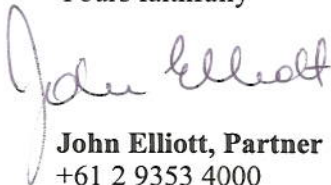 Yours faithfully
John Elliott
John Elliott, Partner
+61 2 9353 4000